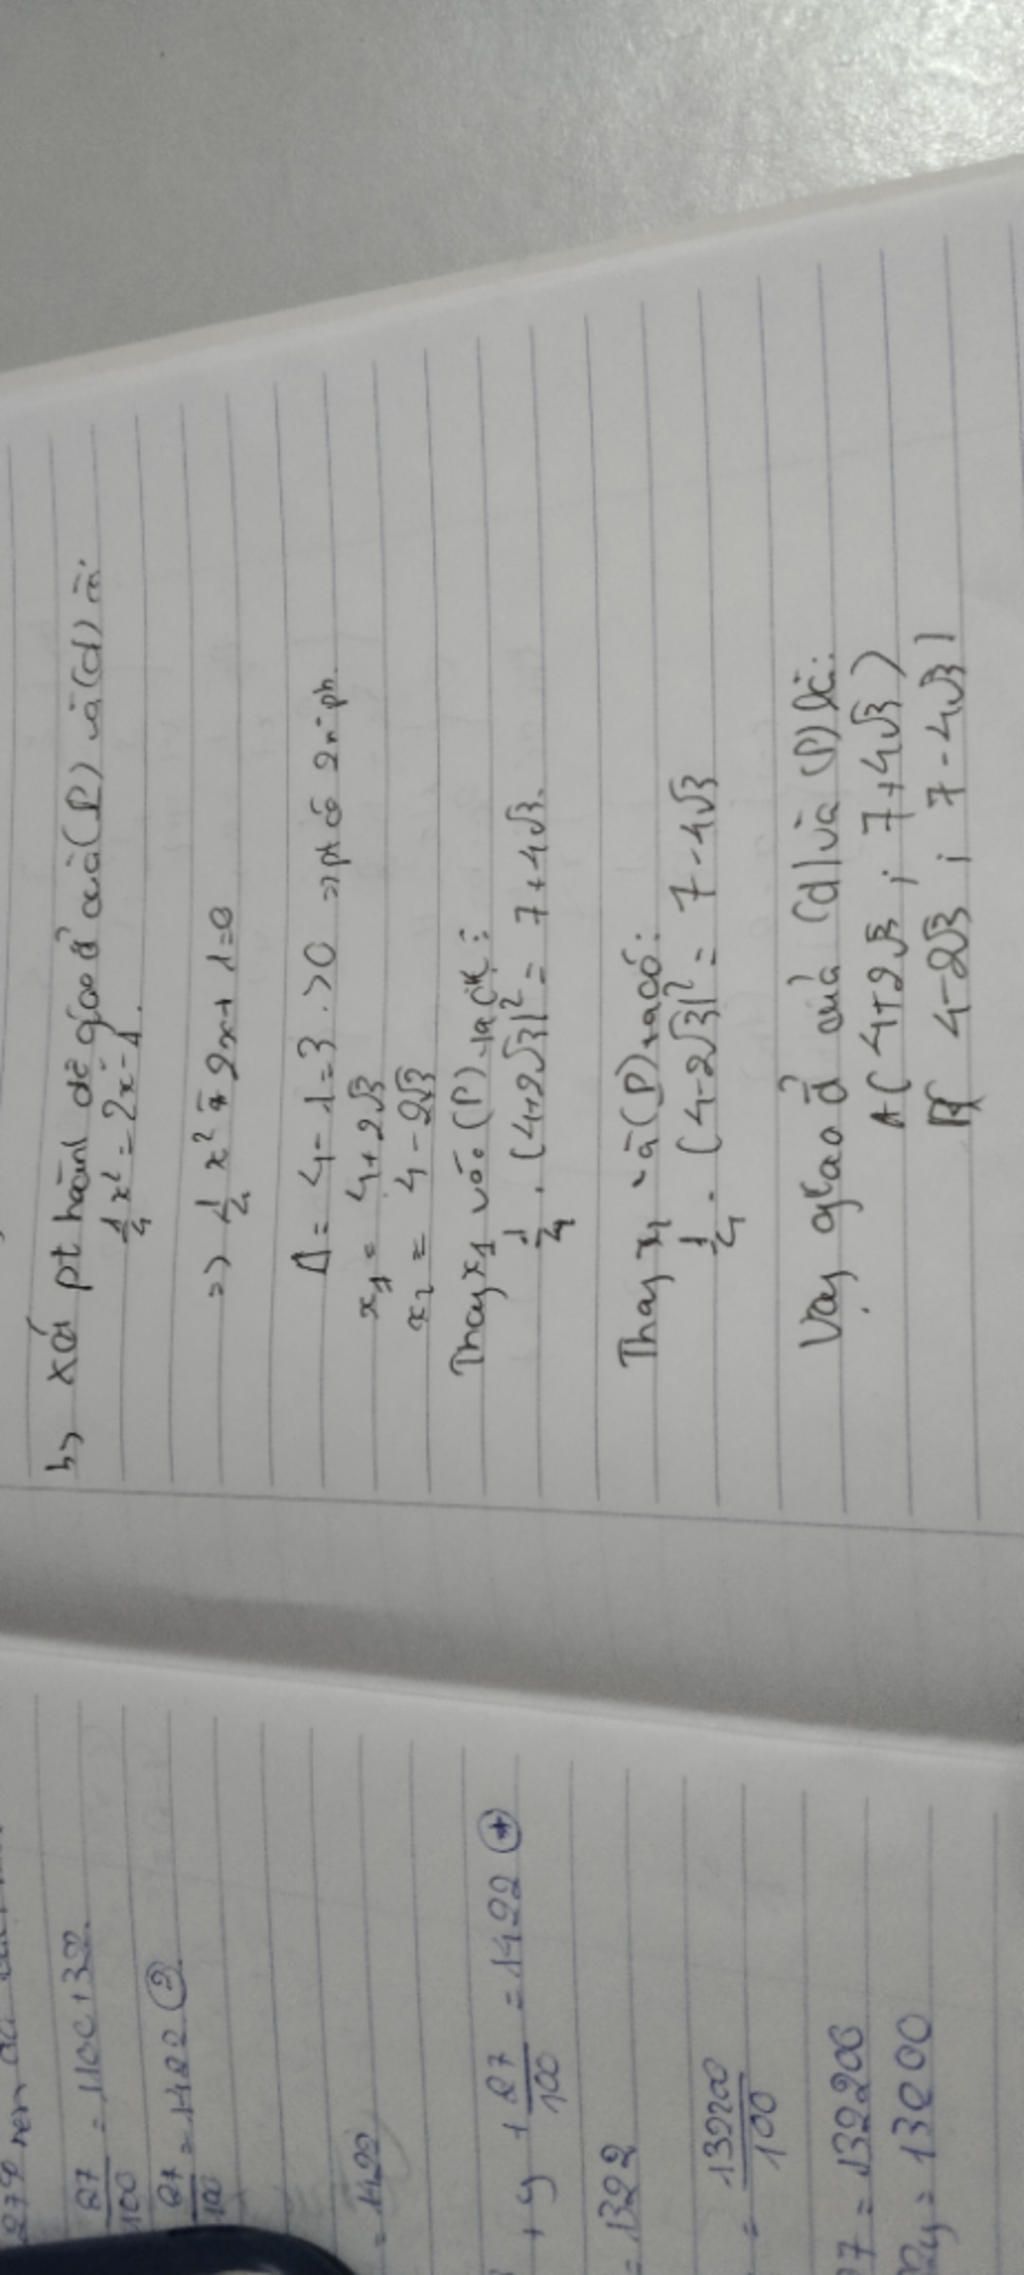 b, Xét pt hoành độ giao đ' của (P) và (d) là:
1/4 x² = 2x - 1.
=> 1/4 x² - 2x + 1 = 0
Δ = 4 - 1 = 3 > 0 => pt có 2 n° pb.
x₁ = 4 + 2√3
x₂ = 4 - 2√3
Thay x₁ vào (P) ta có:
1/4 . (4+2√3)² = 7 + 4√3.
Thay x₁ và (P) ta có:
1/4 . (4-2√3)² = 7 - 4√3
Vậy giao đ' của (d) và (P) là:
A( 4+2√3 ; 7+4√3 )
B( 4-2√3 ; 7-4√3 )
27/100 = 1422 ②
= 1422
+ y + 27/100 = 1422
= 1322
= 132200/100
27 = 132200